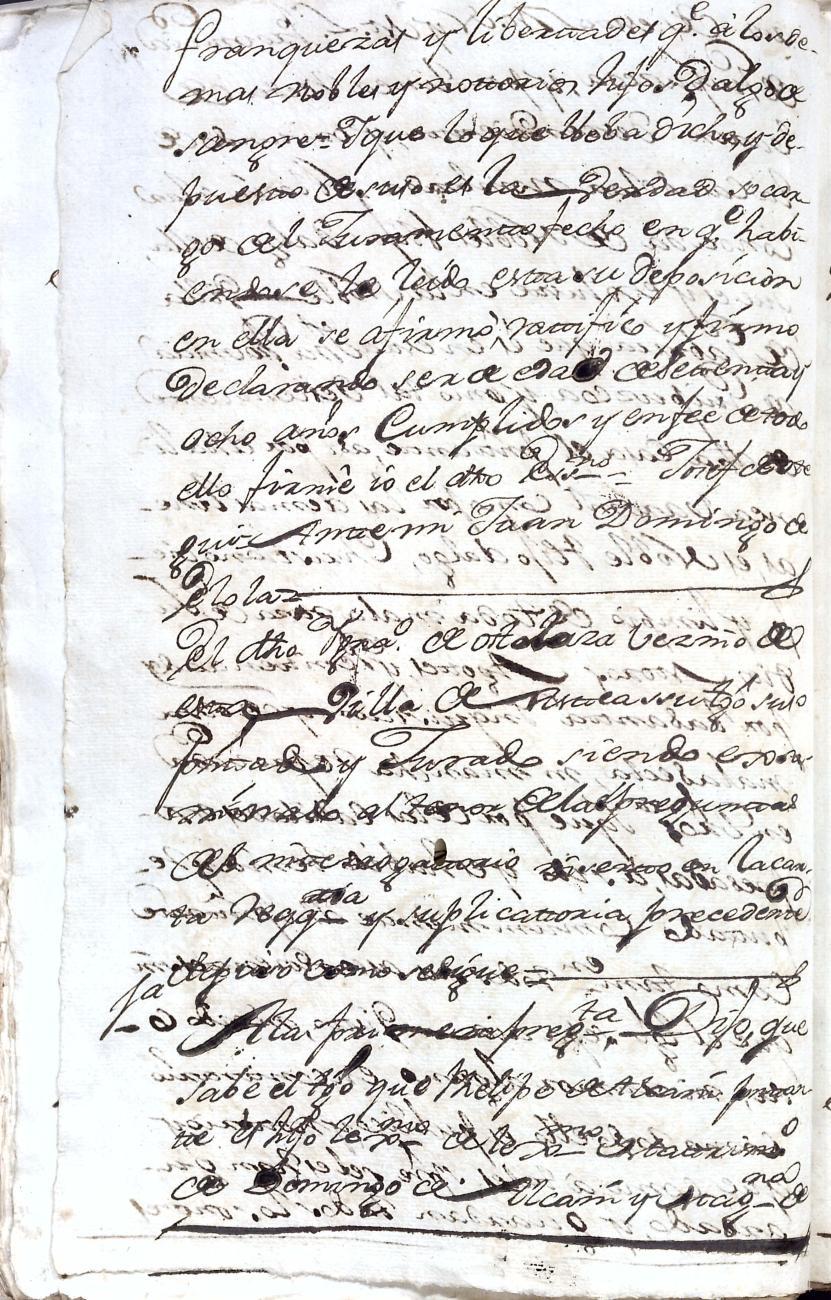 franquezas y libertades q.e á los de-
mas nobles y nottorios hijos Dalgo de
sangre = Y que lo que lleba dicho, y de-
puesto de suso es la Verdad so car-
go del Juramento fecho en q.e habi-
endose le leido esta su deposicion
en ella se afirmó, rattificó y firmo
Declarando ser de edad de setenta y
ocho años Cumplidos y en fee de todo
ello firmé ió el dho Ess.no = Josef de
Antemi Juan Domingo de
Olola =
El dho Fran.co de otalaza vezino de
esta Villa de tt.go suso
Juntado y Jurado siendo exsa-
minado al tenor de las preguntas
del interrogatorio inserto en la car-
ta Reqq.toria y suplicattoria precedente
depuso como se sigue =
1.a A la primera preg.ta Dijo, que
sabe el tt.go que Phelipe de Alcain
te es hijo lex.mo de lex.mo matrimo.o
de Domingo de Alcain y de